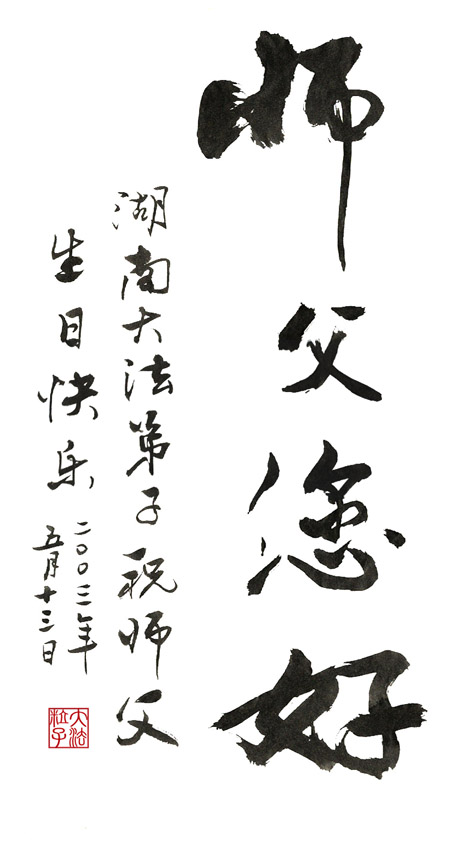 师父您好
湖南大法弟子祝师父
生日快乐
二〇〇三年
五月十三日
大法
粒子